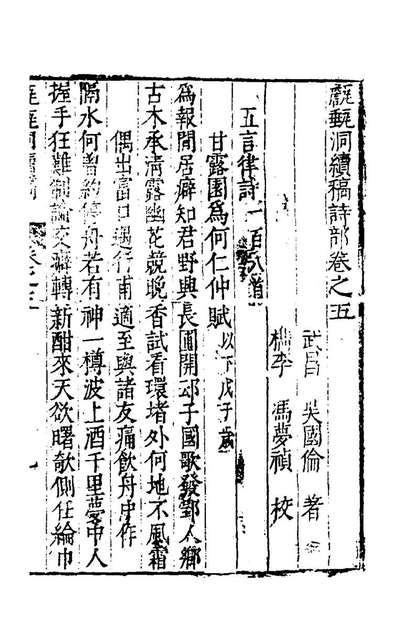 甔甀洞續稿詩部卷之五
武昌　吳國倫　著
檇李　馮夢禎　校
五言律詩一百八首
甘露園爲何仁仲賦以下戊子歲
爲報閒居癖知君野興長圃開邵子國歌發郢人鄉
古木承清露幽花競晚香試看環堵外何地不風霜
偶出富口遇行甫適至與諸友痛飲舟中作
隔水何曾約停舟若有神一樽波上酒千里夢中人
握手狂難制論交癖轉新酣來天欲曙欹側任綸巾